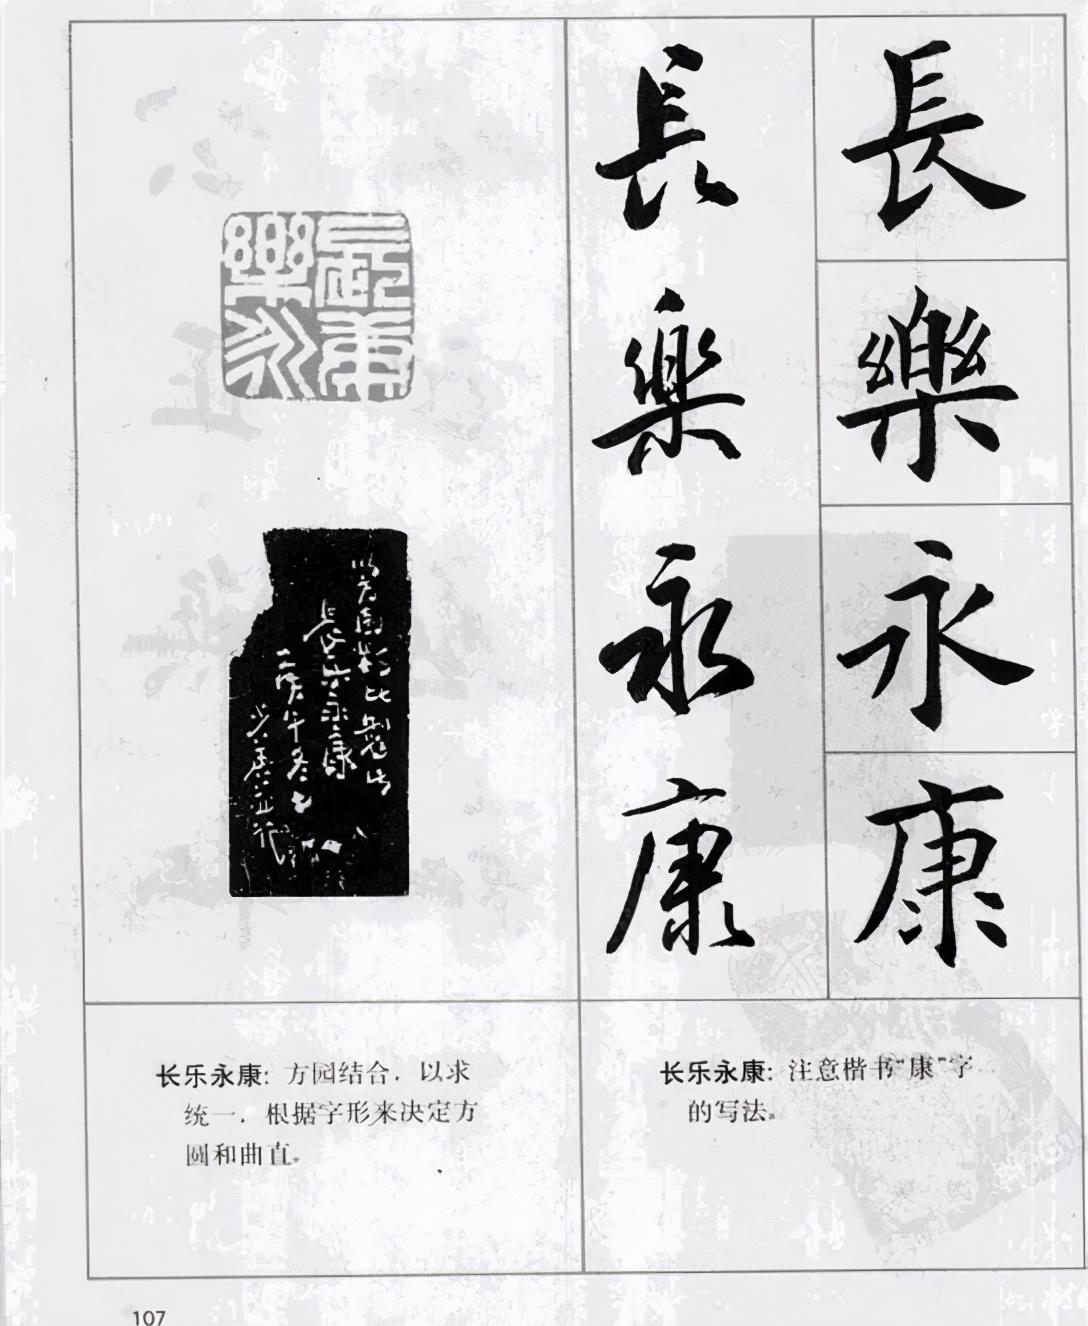 長樂永康
長樂永康
長樂永康
長樂永康
长乐永康
长乐永康：方园结合，以求
统一，根据字形来决定方
圆和曲直。
长乐永康：注意楷书“康”字
的写法。
107